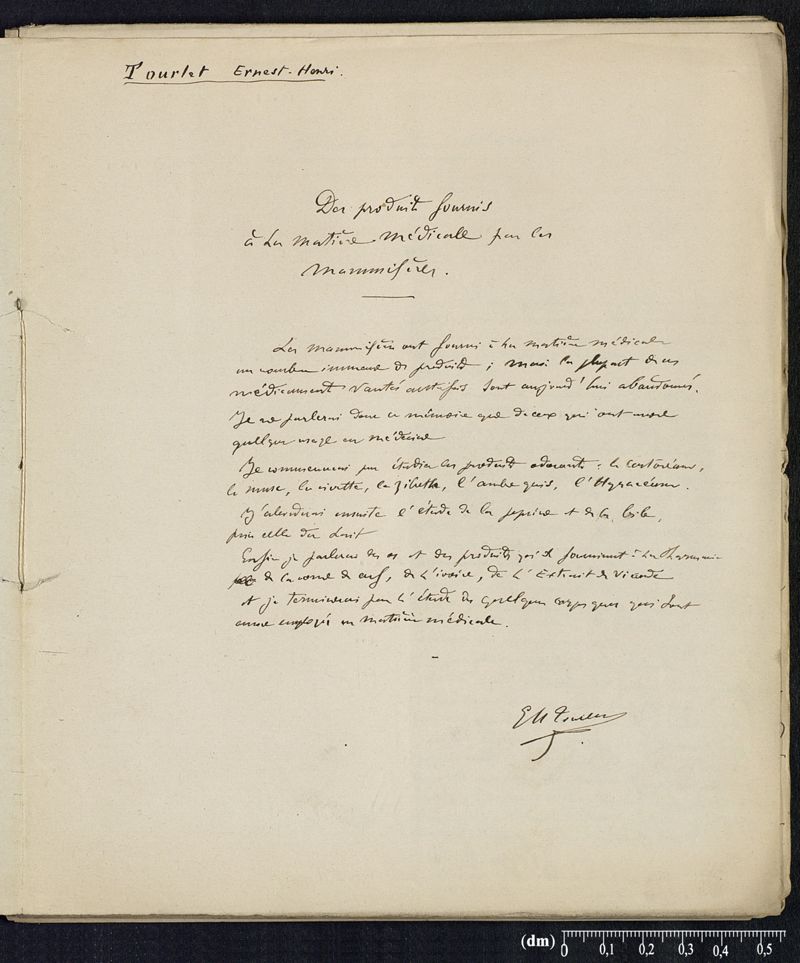 Tourlet Ernest-Henri.
Des produits fournis
à la matière médicale par les
mammifères.
Les mammifères ont fourni à la matière médicale
un nombre immense de produits ; mais la plupart de ces
médicaments vantés autrefois sont aujourd'hui abandonnés.
Je ne parlerai dans ce mémoire que de ceux qui ont encore
quelque usage en médecine
Je commencerai par étudier les produits odorants : le castoréum,
le musc, la civette, le zibeth, l'ambre gris, l'Hyraceum.
J'aborderai ensuite l'étude de la pepsine et de la bile,
puis celle du lait
Enfin je parlerai des os et des produits qu'ils fournissent à la Pharmacie
de la corne de cerf, de l'ivoire, de l'Extrait de Viande
et je terminerai par l'étude de quelques corps gras qui sont
encore employés en matière médicale.
EH Tourlet
(dm) 0 0,1 0,2 0,3 0,4 0,5